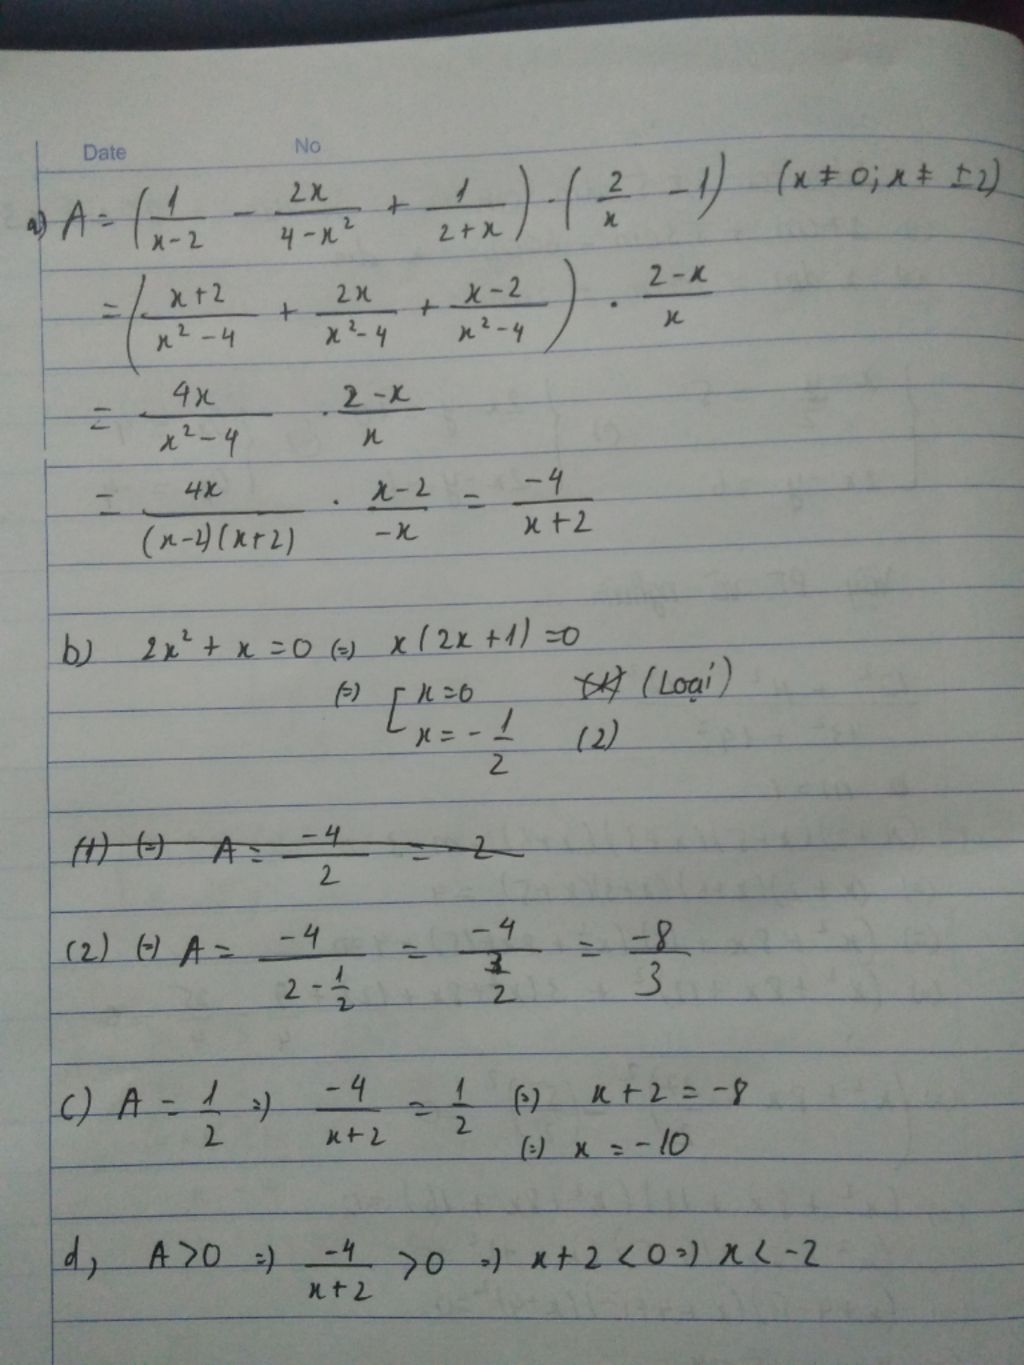 Date No
a) A = (1/(x-2) - 2x/(4-x²) + 1/(2+x)) · (2/x - 1) (x ≠ 0; x ≠ ±2)
= ((x+2)/(x²-4) + 2x/(x²-4) + (x-2)/(x²-4)) · (2-x)/x
= 4x/(x²-4) · (2-x)/x
= 4x/((x-2)(x+2)) · (x-2)/(-x) = -4/(x+2)
b) 2x² + x = 0 (=) x(2x+1) = 0
(=) [ x = 0 (1) (Loại)
x = -1/2 (2)
(1) (=) A = -4/2 = -2
(2) (=) A = -4/(2 - 1/2) = -4/(3/2) = -8/3
c) A = 1/2 =) -4/(x+2) = 1/2 (=) x+2 = -8
(=) x = -10
d, A > 0 =) -4/(x+2) > 0 =) x+2 < 0 =) x < -2